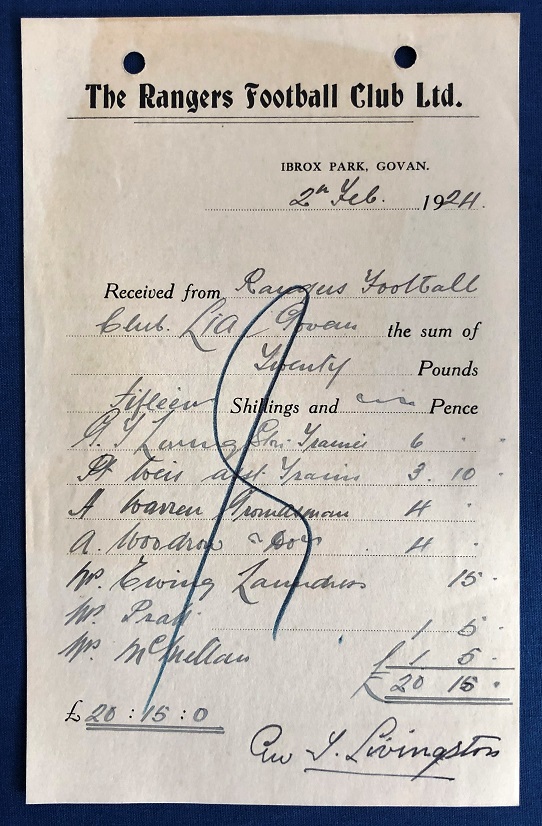 The Rangers Football Club Ltd.
IBROX PARK, GOVAN.
2n Feb. 1924.
Received from Rangers Football
Club. Ltd Govan the sum of
Twenty Pounds
Fifteen Shillings and Pence
G. T. Livingston Trainer 6 " "
Weir asst Trainer 3. 10 "
A Warren Groundsman 4 "
A. Woodrow " Do 4 "
Mrs. Ewing Laundress 15 "
Mrs. Pratt 1 5 "
Mrs. McLellan £1 5 "
£ 20 15 "
£ 20 : 15 : 0
Geo T. Livingston